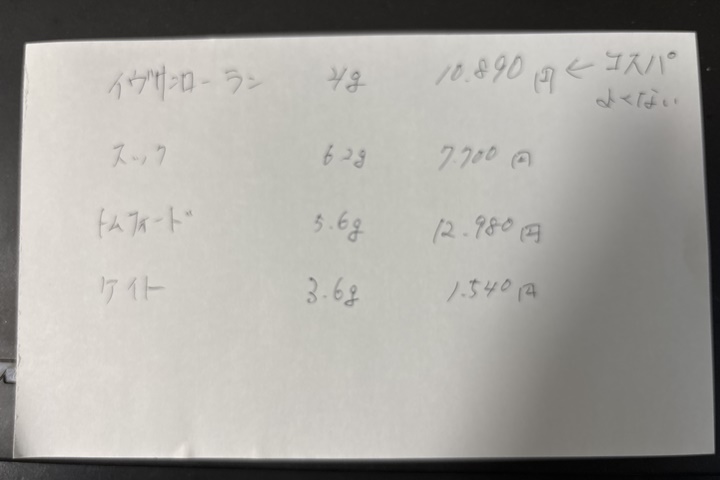 イヴサンローラン 4g 10.890円 ← コスパ
よくない
スック 6.2g 7.700円
トムフォード 5.6g 12.980円
ケイト 3.6g 1.540円